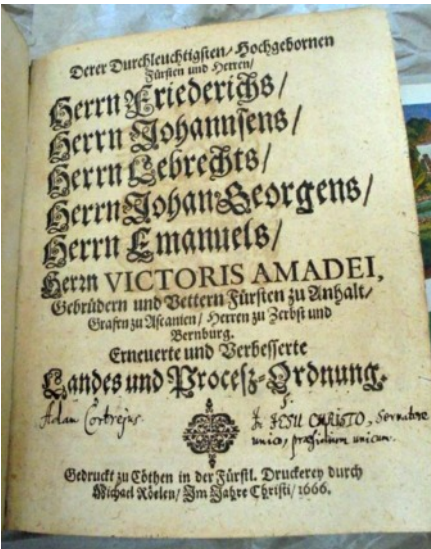 Derer Durchleuchtigsten/ Hochgebornen
Fürsten und Herren/
Herrn Friederichs/
Herrn Johannsens/
Herrn Lebrechts/
Herrn Johan Georgens/
Herrn Emanuels/
Herrn VICTORIS AMADEI,
Gebrüdern und Vettern Fürsten zu Anhalt/
Grafen zu Ascanien/ Herren zu Zerbst und
Bernburg.
Erneuerte und Verbesserte
Landes und Proceß-Ordnung.
Adam Cortrejus.
JESU CHRISTO, Servatore
unico, præsidium unicum.
Gedruckt zu Cöthen in der Fürstl. Druckerey durch
Michael Röelen/ Im Jahre Christi/ 1666.